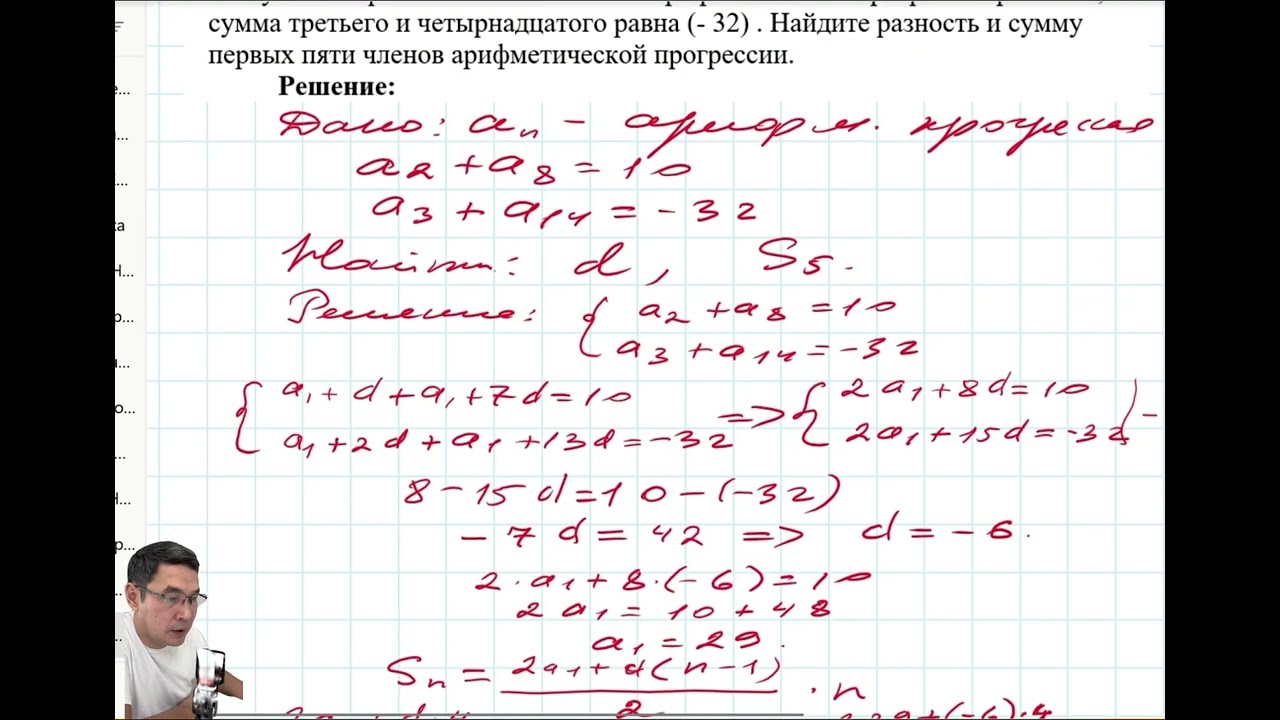 сумма третьего и четырнадцатого равна (- 32) . Найдите разность и сумму
первых пяти членов арифметической прогрессии.
Решение:
Дано: aₙ - арифм. прогрессия
a₂ + a₈ = 10
a₃ + a₁₄ = -32
Найти: d, S₅.
Решение: { a₂ + a₈ = 10
a₃ + a₁₄ = -32
{ a₁ + d + a₁ + 7d = 10
a₁ + 2d + a₁ + 13d = -32
=> { 2a₁ + 8d = 10
2a₁ + 15d = -32 } -
8 - 15d = 10 - (-32)
-7d = 42 => d = -6.
2 · a₁ + 8 · (-6) = 10
2a₁ = 10 + 48
a₁ = 29.
Sₙ = (2a₁ + d(n-1))/2 · n